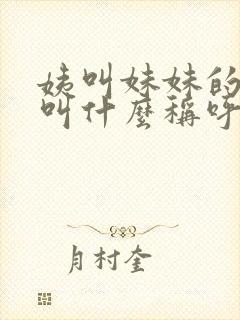 姨叫妹妹的
叫什麼稱呼
月村奎